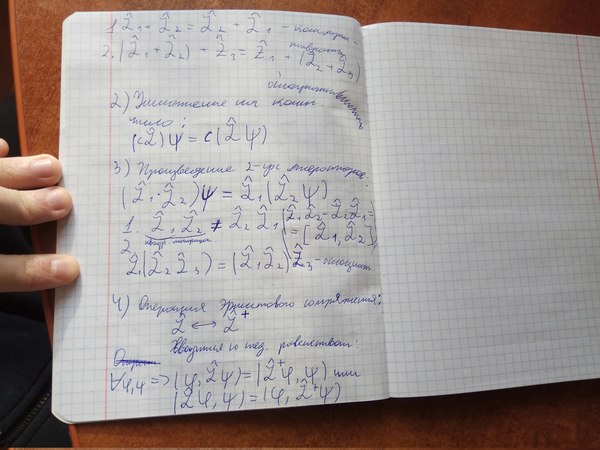 1. L̂₁ + L̂₂ = L̂₂ + L̂₁ - коммута-
тивность
2. (L̂₁ + L̂₂) + L̂₃ = L̂₁ + (L̂₂ + L̂₃)
ассоциативность
2) Умножение на комп.
число:
(cL̂)ψ = c(L̂ψ)
3) Произведение 2-ух операторов:
(L̂₁·L̂₂)ψ = L̂₁(L̂₂ψ)
1. L̂₁L̂₂ ≠ L̂₂L̂₁ (L̂₁L̂₂ - L̂₂L̂₁ =
= [L̂₁, L̂₂])
2.
L̂₁(L̂₂L̂₃) = (L̂₁L̂₂)L̂₃ - ассоциат
4) Операция эрмитового сопряжения:
L̂ ↔ L̂⁺
Вводится след. равенством:
∀φ,ψ => (φ, L̂ψ) = (L̂⁺φ, ψ) или
(L̂φ, ψ) = (φ, L̂⁺ψ)